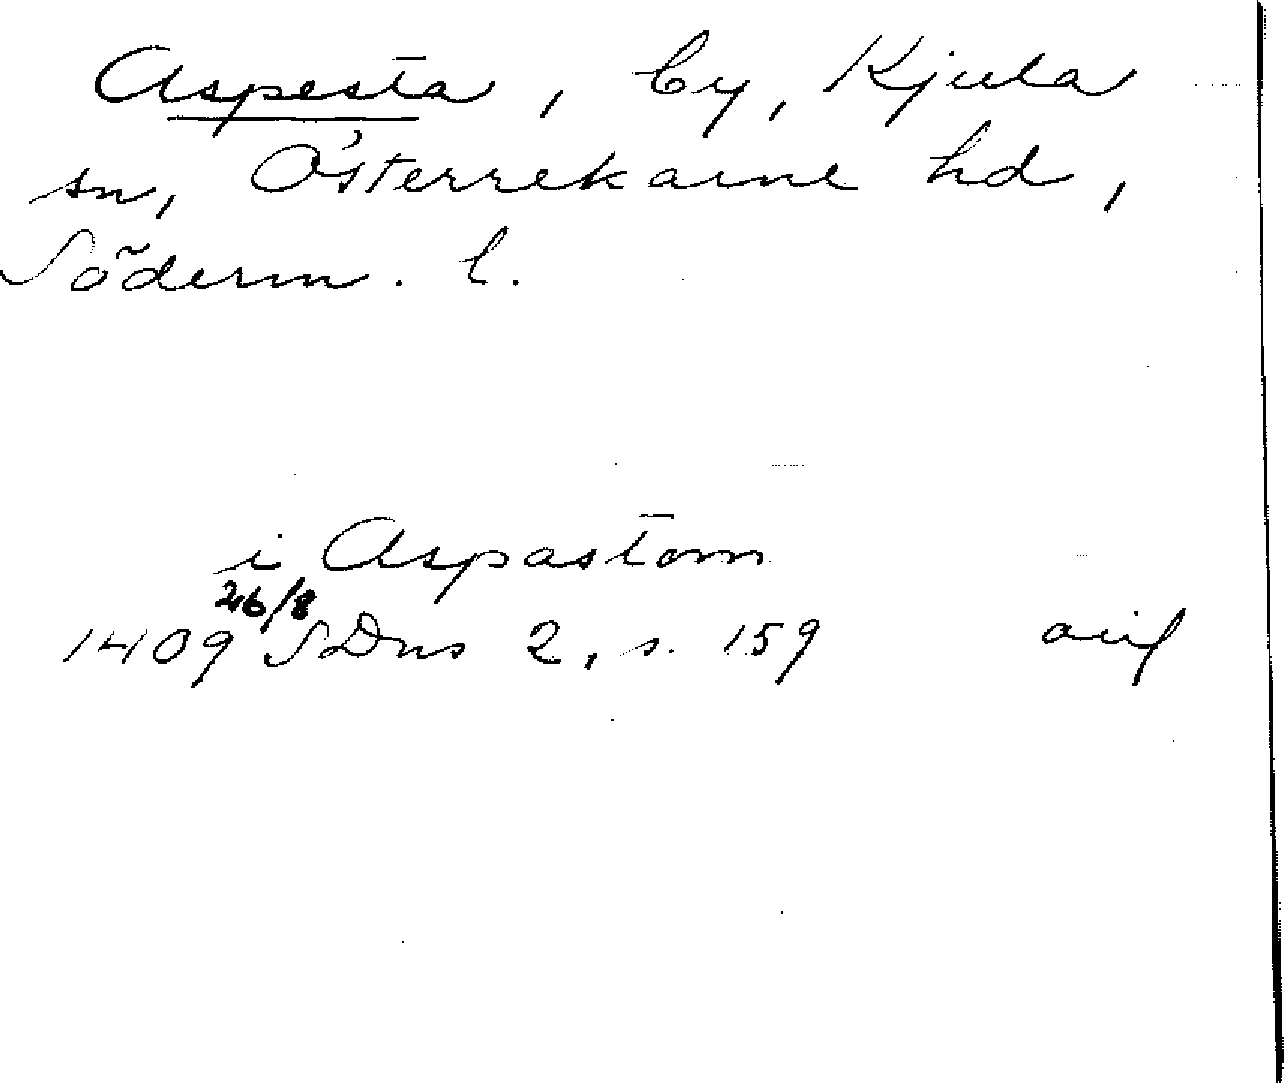 Aspesta, by, Kjula
sn, Österrekarne hd,
Söderm. l.
i Aspastom
26/8
1409 SDns 2, s. 159